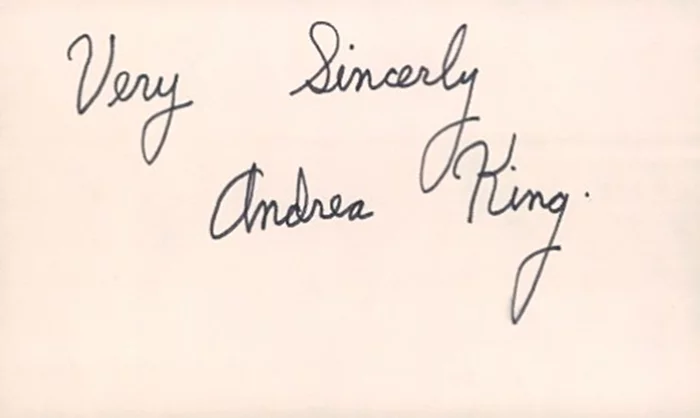 Very Sincerly
Andrea King.